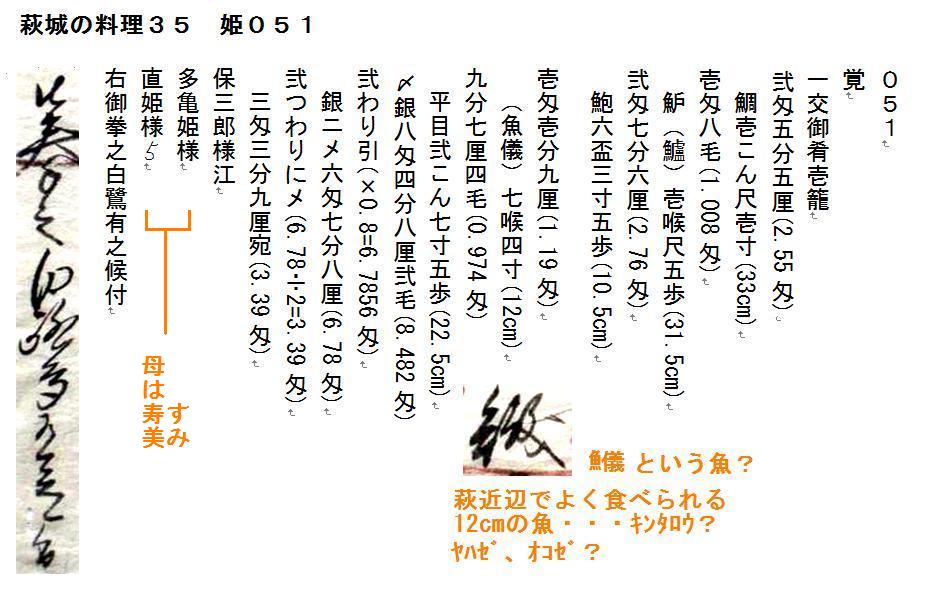 萩城の料理３５　姫０５１
０５１
覚
一交御肴壱籠
弐匁五分五厘(2.55匁)
鯛壱こん尺壱寸(33cm)
壱匁八毛(1.008匁)
鈩（鱸）壱喉尺五歩(31.5cm)
弐匁七分六厘(2.76匁)
鮑六盃三寸五歩(10.5cm)
壱匁壱分九厘(1.19匁)
（魚儀）七喉四寸(12cm)
九分七厘四毛(0.974匁)
平目弐こん七寸五歩(22.5cm)
〆銀八匁四分八厘弐毛(8.482匁)
弐わり引(×0.8=6.7856匁)
銀二メ六匁七分八厘(6.78匁)
弐つわりにメ(6.78÷2=3.39匁)
三匁三分九厘宛(3.39匁)
保三郎様江
多亀姫様
直姫様ゟ
右御拳之白鷺有之候付
母は寿美
すみ
魚儀 という魚？
萩近辺でよく食べられる
12cmの魚・・・ｷﾝﾀﾛｳ？
ﾔﾊｾﾞ、ｵｺｾﾞ？